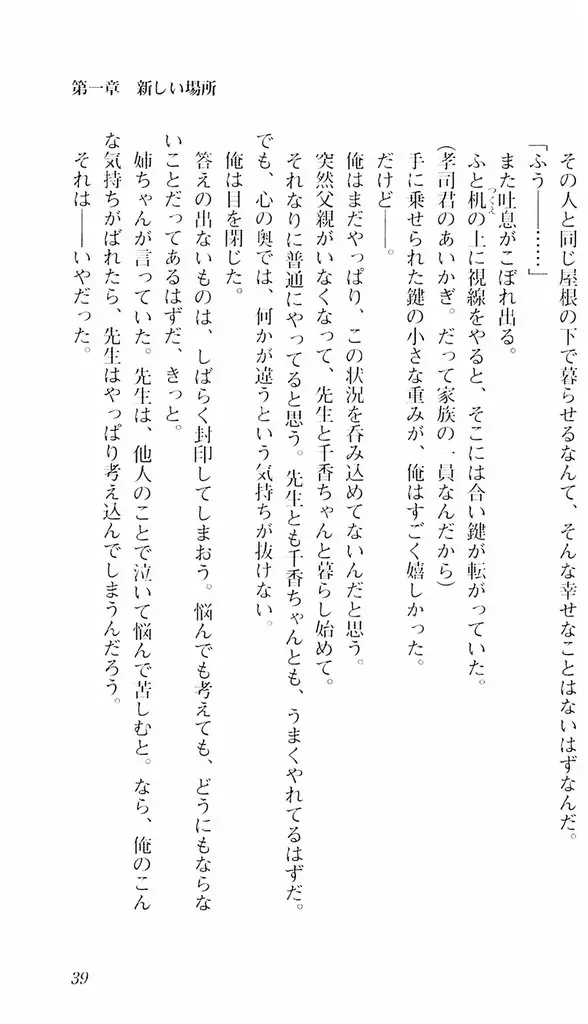 第一章　新しい場所
その人と同じ屋根の下で暮らせるなんて、そんな幸せなことはないはずなんだ。
「ふう――……」
また吐息がこぼれ出る。
ふと机の上に視線をやると、そこには合い鍵が転がっていた。
つくえ
(孝司君のあいかぎ。だって家族の一員なんだから)
手に乗せられた鍵の小さな重みが、俺はすごく嬉しかった。
だけど――。
俺はまだやっぱり、この状況を呑み込めてないんだと思う。
突然父親がいなくなって、先生と千香ちゃんと暮らし始めて。
それなりに普通にやってると思う。先生とも千香ちゃんとも、うまくやれてるはずだ。
でも、心の奥では、何かが違うという気持ちが抜けない。
俺は目を閉じた。
答えの出ないものは、しばらく封印してしまおう。悩んでも考えても、どうにもならな
いことだってあるはずだ、きっと。
姉ちゃんが言っていた。先生は、他人のことで泣いて悩んで苦しむと。なら、俺のこん
な気持ちがばれたら、先生はやっぱり考え込んでしまうんだろう。
それは――いやだった。
39